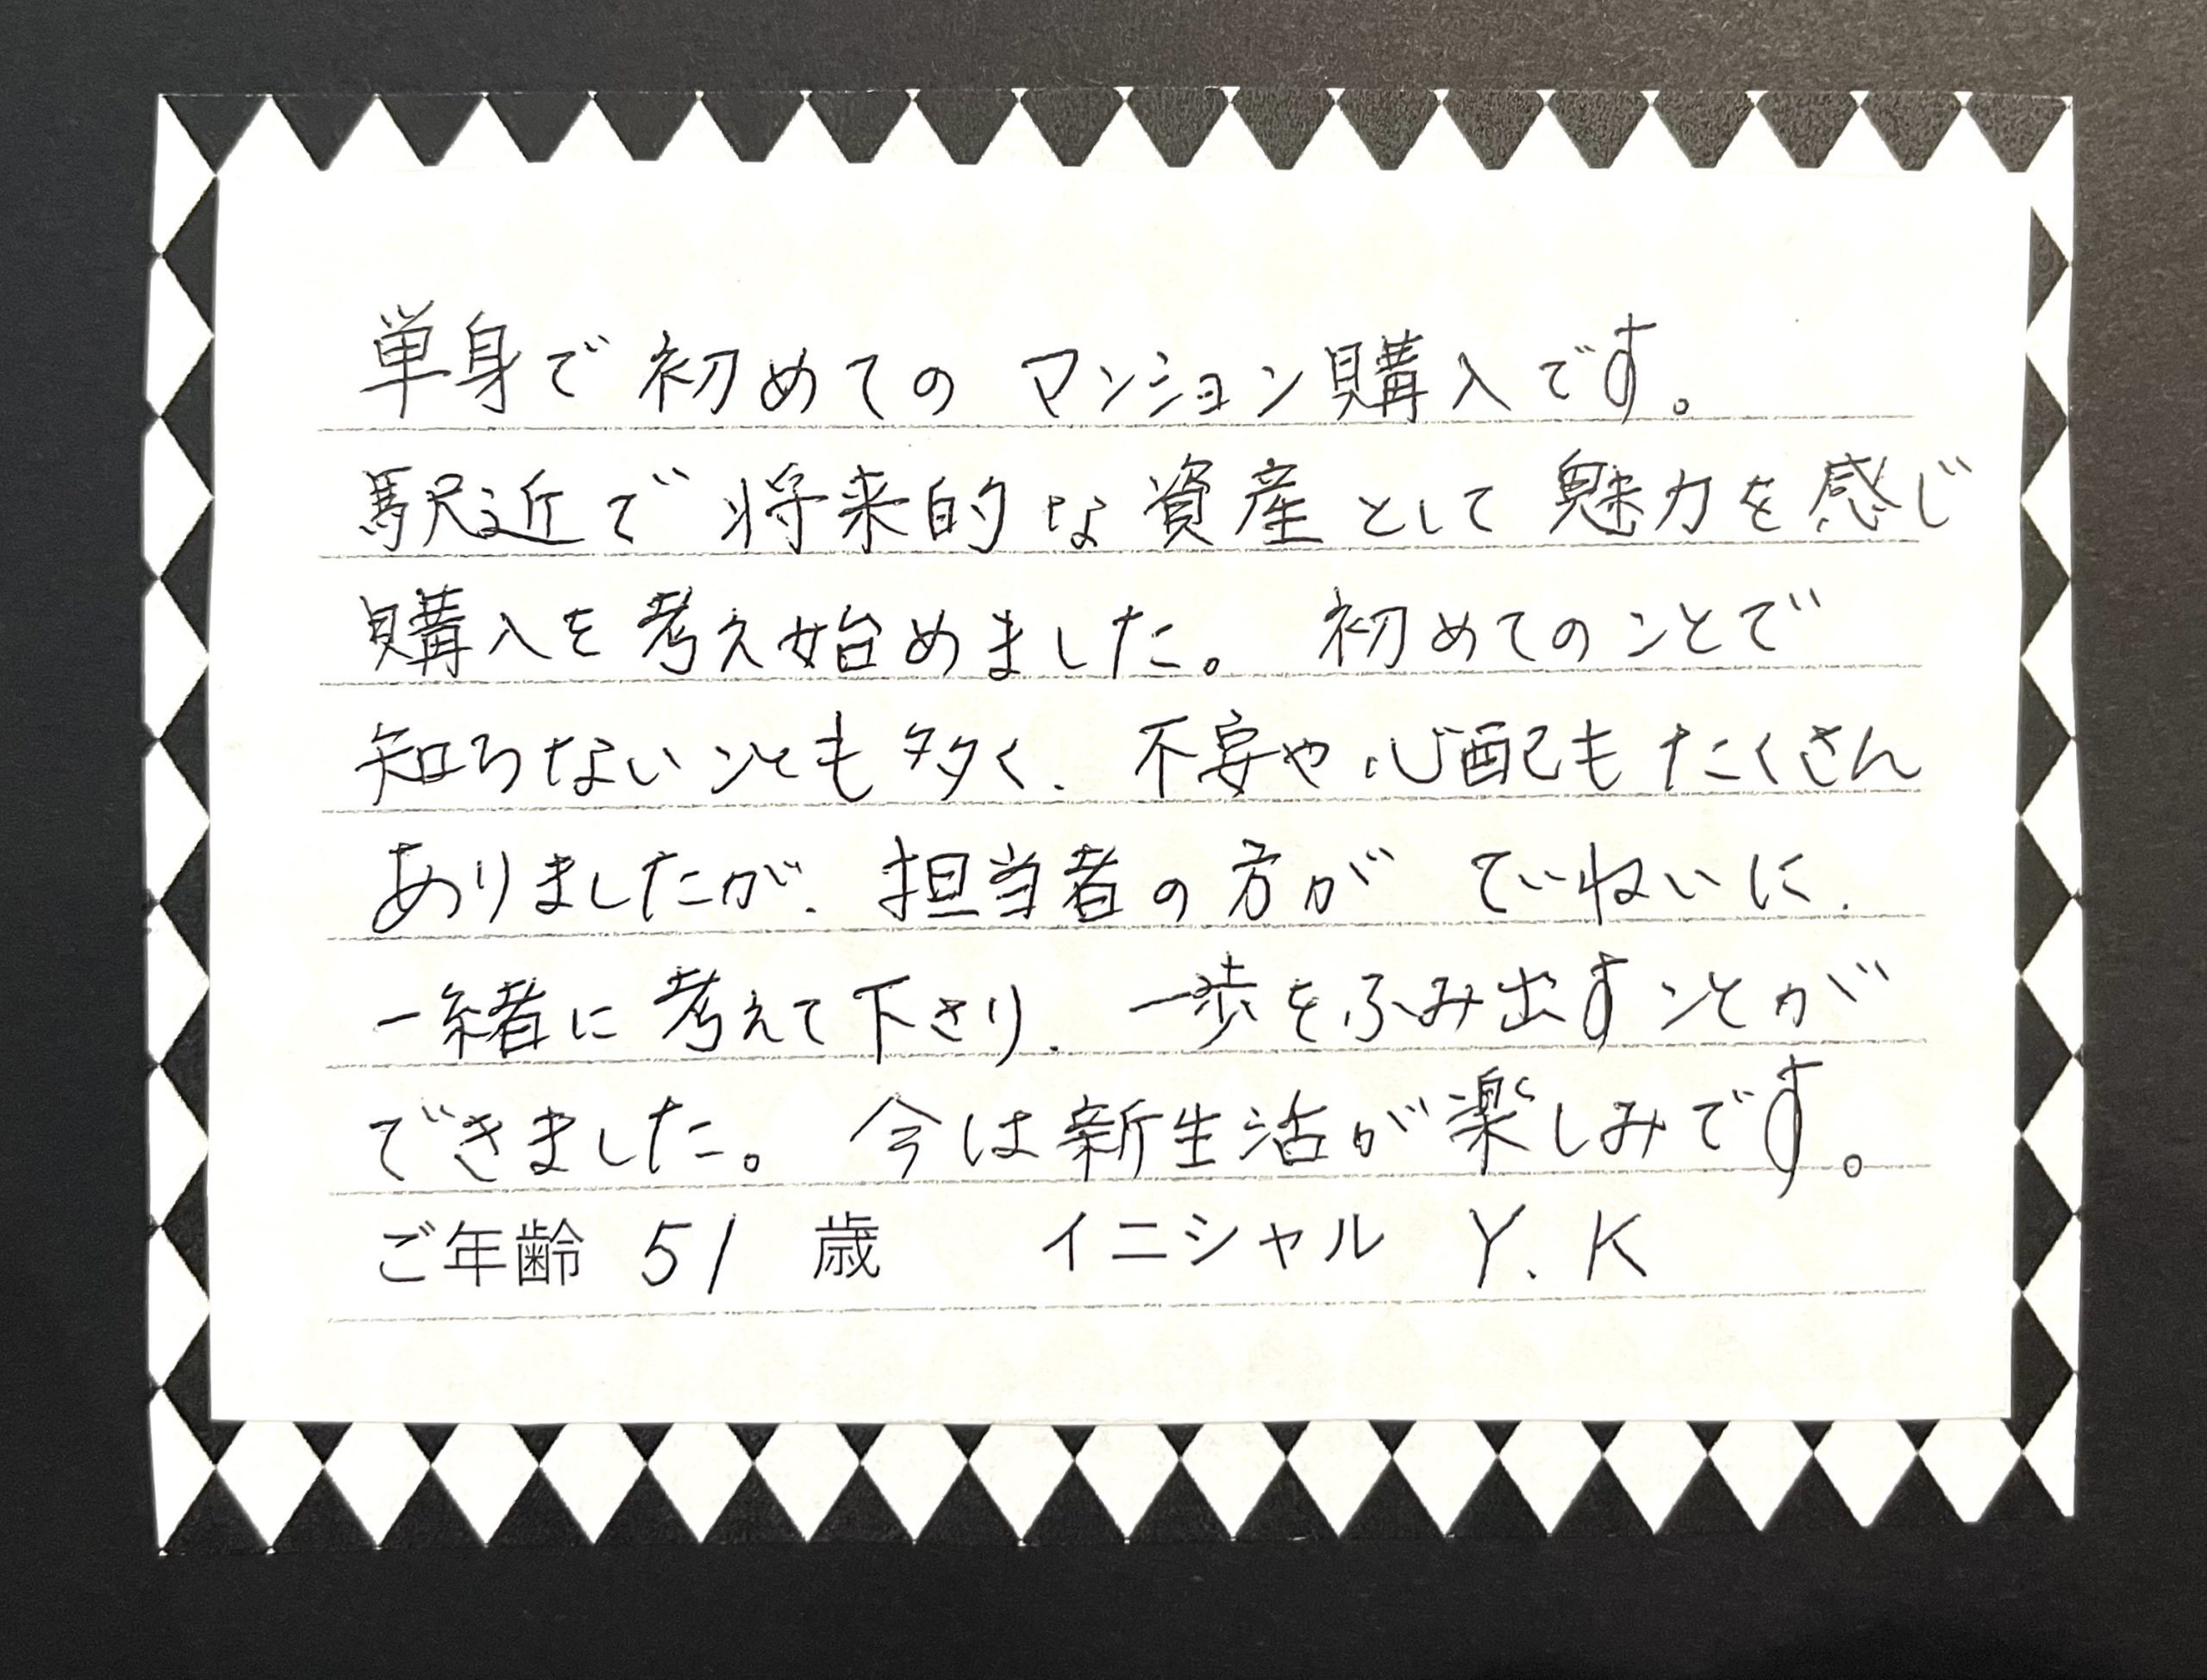 単身で初めてのマンション購入です。
駅近で将来的な資産として魅力を感じ
購入を考え始めました。初めてのことで
知らないことも多く、不安や心配もたくさん
ありましたが、担当者の方がていねいに、
一緒に考えて下さり、一歩をふみ出すことが
できました。今は新生活が楽しみです。
ご年齢 51 歳 イニシャル Y.K